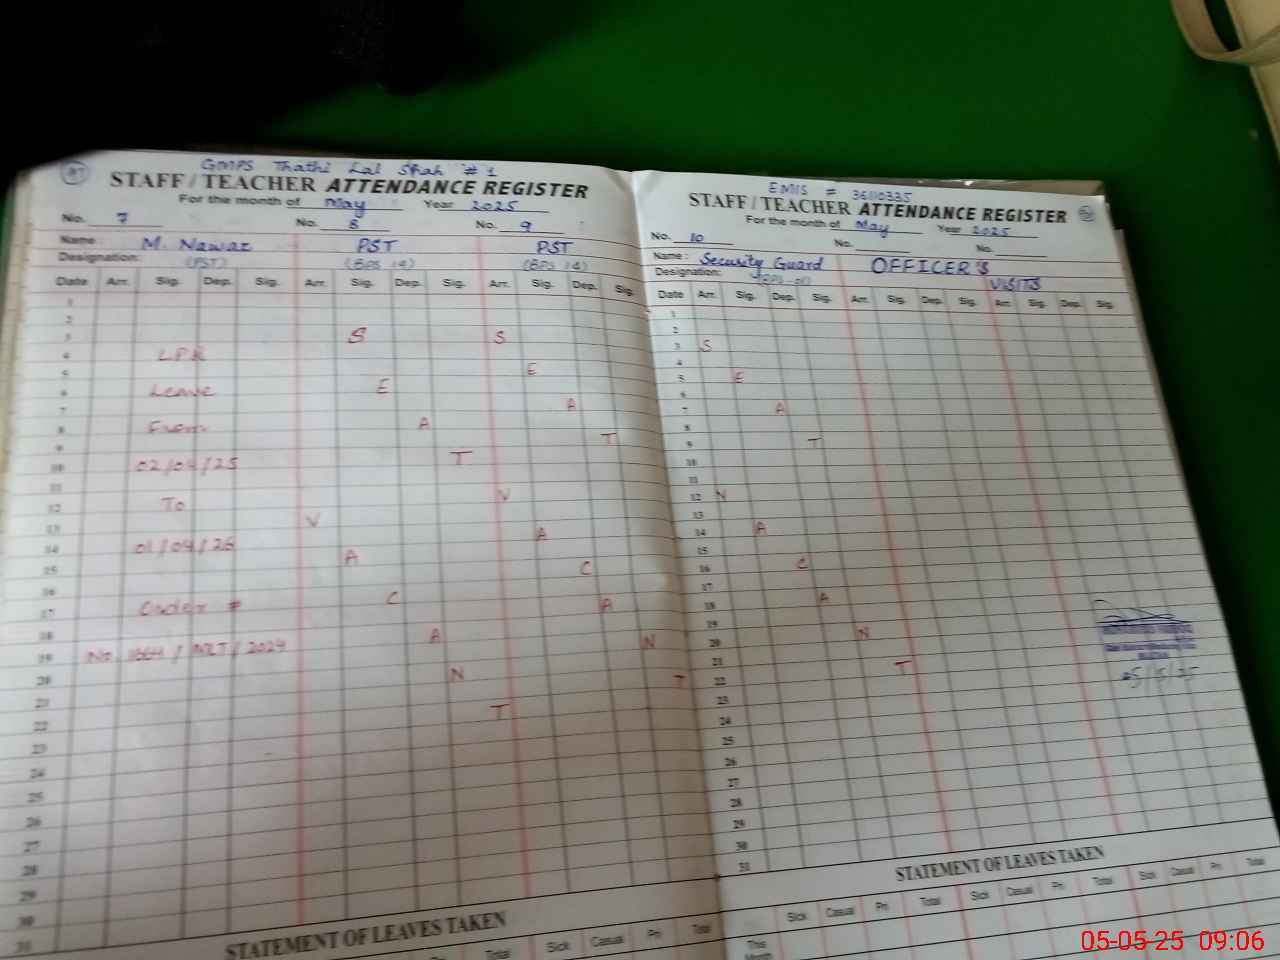 GMPS Thathi Lal Shah # 1
STAFF / TEACHER ATTENDANCE REGISTER
For the month of May Year 2025
No. 7 No. 8 No. 9
Name: M. Nawaz PST PST
Designation: (PST) (BPS 14) (BPS 14)
Date Arr. Sig. Dep. Sig. Arr. Sig. Dep. Sig. Arr. Sig. Dep. Sig.
1
2
3 S S
4 LPR
5 E
6 Leave E
7 A
8 From A
9 T
10 02/04/25 T
11
12 To V
13 V
14 01/04/26 A
15 A C
16
17 Order # C A
18 A
19 No 1664 / MLT / 2024 N
20 N T
21
22 T
23
24
25
26
27
28
29
30
31
STATEMENT OF LEAVES TAKEN
Sick Casual Pri Total
EMIS = 36110335
STAFF / TEACHER ATTENDANCE REGISTER
For the month of May Year 2025
No. 10 No. No.
Name: Security Guard OFFICER'S VISITS
Designation:
Date Arr. Sig. Dep. Sig. Arr. Sig. Dep. Sig. Arr. Sig. Dep. Sig.
1
2
3 S
4
5 E
6
7 A
8
9 T
10
11
12 N
13
14 A
15
16 C
17
18 A
19
20 N
21
22 T
23
24
25
26
27
28
29
30
31
05/5/25
STATEMENT OF LEAVES TAKEN
Sick Casual Pri Total Sick Casual Pri Total
This
Month
05-05-25 09:06